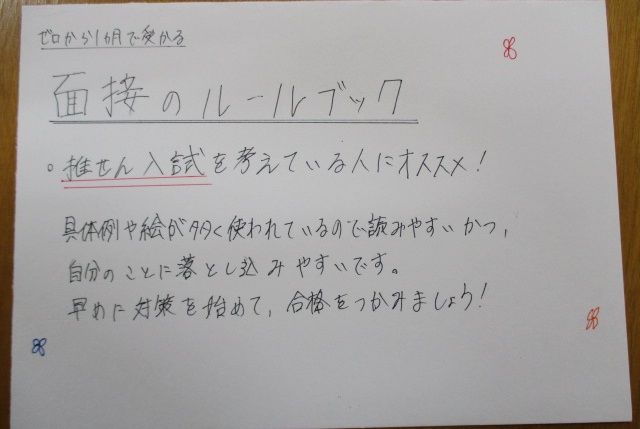 ゼロから1カ月で受かる
面接のルールブック
。推せん入試を考えている人にオススメ!
具体例や絵が多く使われているので読みやすいかつ、
自分のことに落とし込みやすいです。
早めに対策を始めて、合格をつかみましょう!